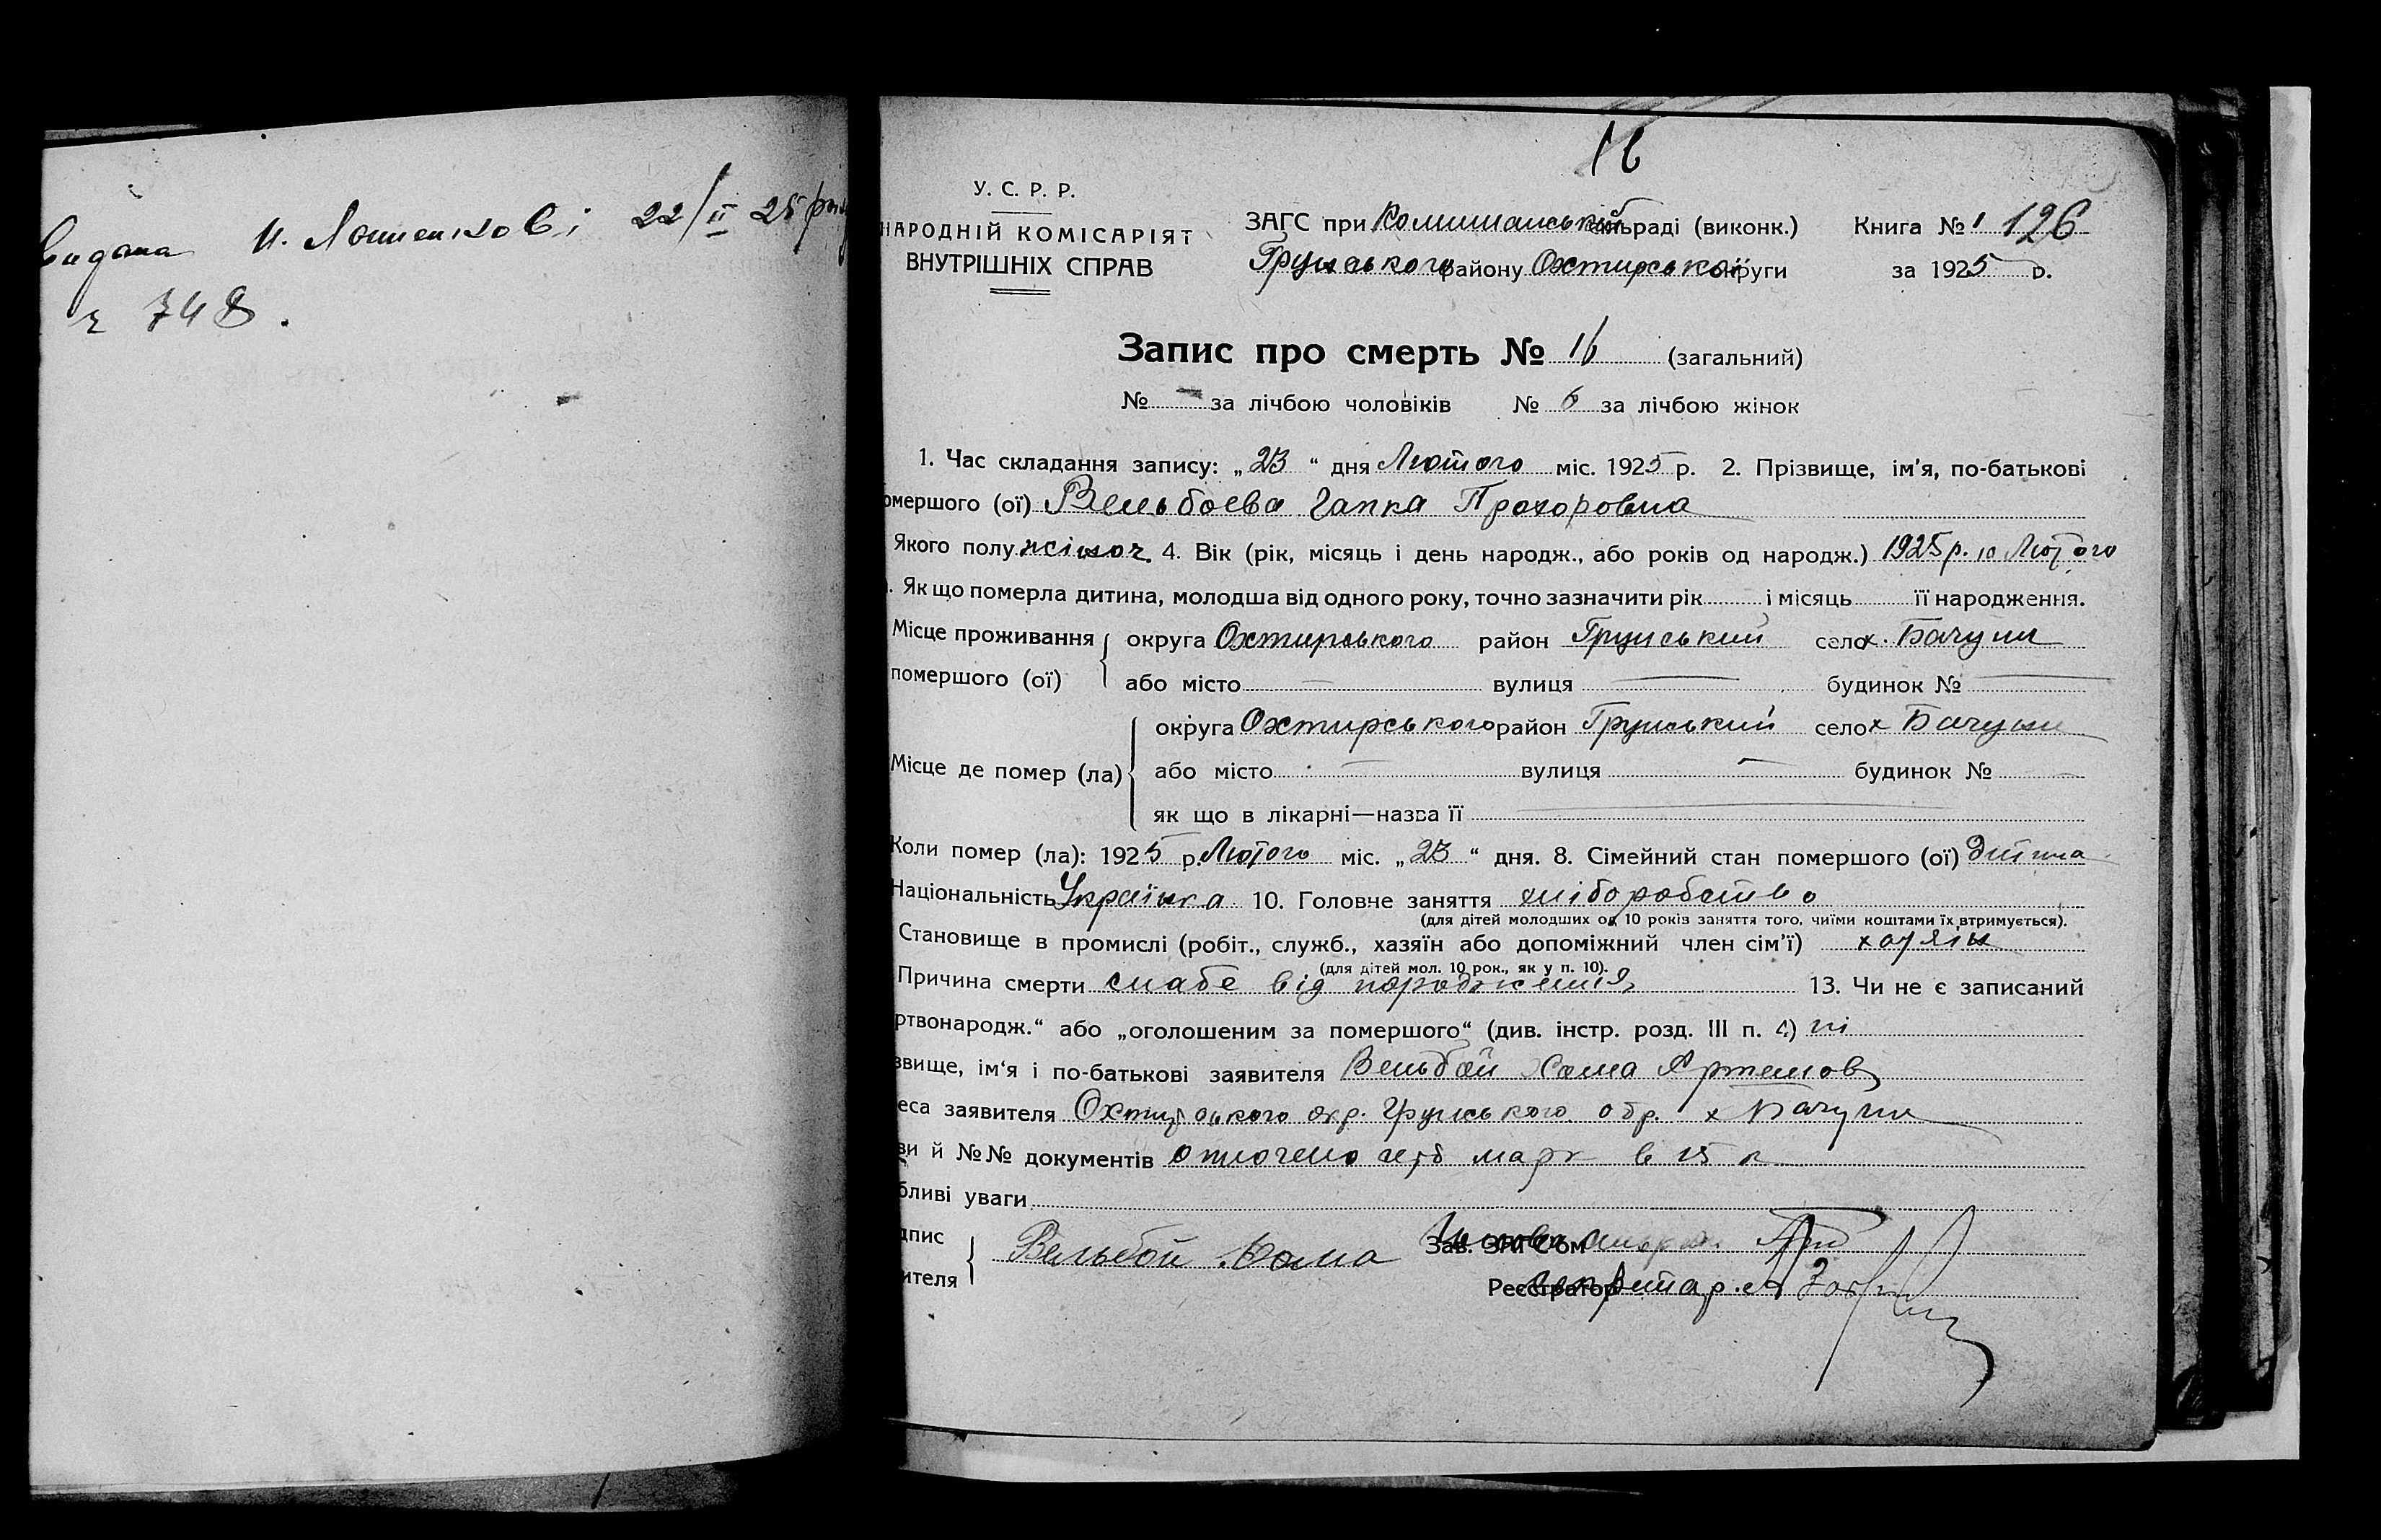 видана И. Лошенкові 22/II 25
748.
16
У. С. Р. Р.
НАРОДНІЙ КОМІСАРІЯТ
ВНУТРІШНІХ СПРАВ
ЗАГС при Комишанській сільраді (виконк.)
Грунського району Охтирської округи
Книга № 1 126
за 1925 р.
Запис про смерть № 16 (загальний)
№ — за лічбою чоловіків № 6 за лічбою жінок
1. Час складання запису: „23“ дня Лютого міс. 1925 р. 2. Прізвище, ім’я, по-батькові
омершого (ої) Вельбоева Гапка Прохоровна
Якого полу жіноч. 4. Вік (рік, місяць і день народж., або років од народж.) 1925 р. 10 Лютого
. Як що померла дитина, молодша від одного року, точно зазначити рік і місяць її народження.
Місце проживання округа Охтирського район Грунський село х. Бачуни
помершого (ої) або місто — вулиця — будинок № —
округа Охтирського район Грунський село х Бачуни
Місце де помер (ла) або місто — вулиця — будинок № —
як що в лікарні—назва її —
Коли помер (ла): 1925 р. Лютого міс. „23“ дня. 8. Сімейний стан помершого (ої) дитина
Національність Українка 10. Головне заняття хліборобство
(для дітей молодших од 10 років заняття того, чиїми коштами їх втримується).
Становище в промислі (робіт., служб., хазяїн або допоміжний член сім’ї) хазяїн
(для дітей мол. 10 рок., як у п. 10).
Причина смерти слабе від народження 13. Чи не є записаний
ртвонародж.“ або „оголошеним за помершого“ (див. інстр. розд. III п. 4) ні
звище, ім‘я і по-батькові заявителя Вельбой Хома Артемов
еса заявителя Охтирського окр. Грунського обр. х Бачуни
ви й №№ документів оплочено герб марк в 15 к
бливі уваги
дпис Вельбой Хома Зав. ЗАГСом
ителя Реєстратор Секретар